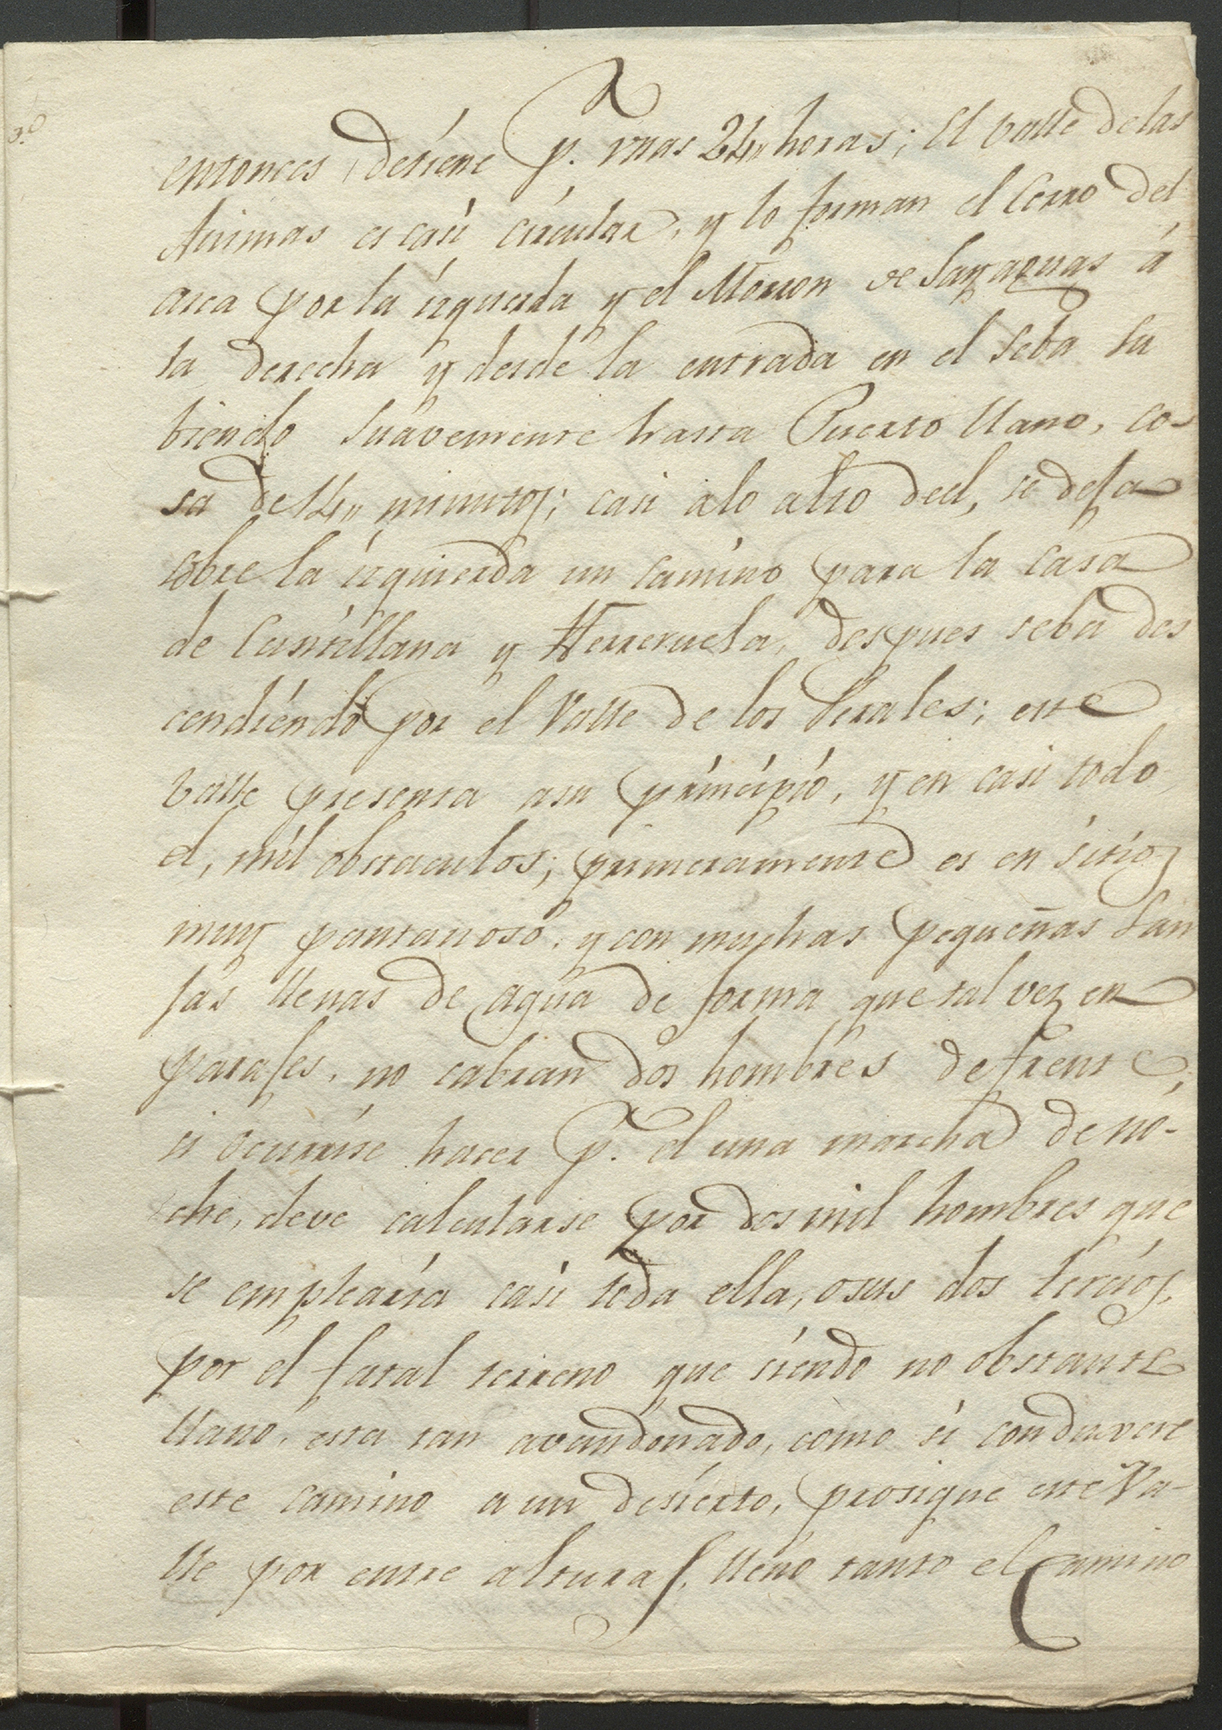 entonces, detiene p.r unas 24,, horas; El valle delas
Animas es casi circular, y lo forman el Cerro del
arca por la izquierda y el Morron de Sayaguas á
la derecha y desde la entrada en el seba su
biendo suavemente hasta Puerto llano, co-
sa de 14,, minutos; casi alo alto deel, se defa
sobre la izquierda un camino para la casa
de Cantillana y Herreruela, despues seba des
cendiendo por el Valle de los Perales; este
valle presenta asu principio, y en casi todo
el, mil obstaculos; primeramente es en sitio
muy pantanoso, y con muchas pequeñas San
fas llenas de agua de forma que tal vez en
parafes, no cabran dos hombres de frente;
si ocurrise hacer p.r el una marcha de no-
che, deve calcularse por dos mil hombres que
se emplearia casi toda ella, osus dos tercios,
por el fatal terreno que siendo no obstante
llano, esta tan avandonado, como si conduxese
este camino a un desierto, prosigue este Va-
lle por entre alturas, lleno tanto el Camino